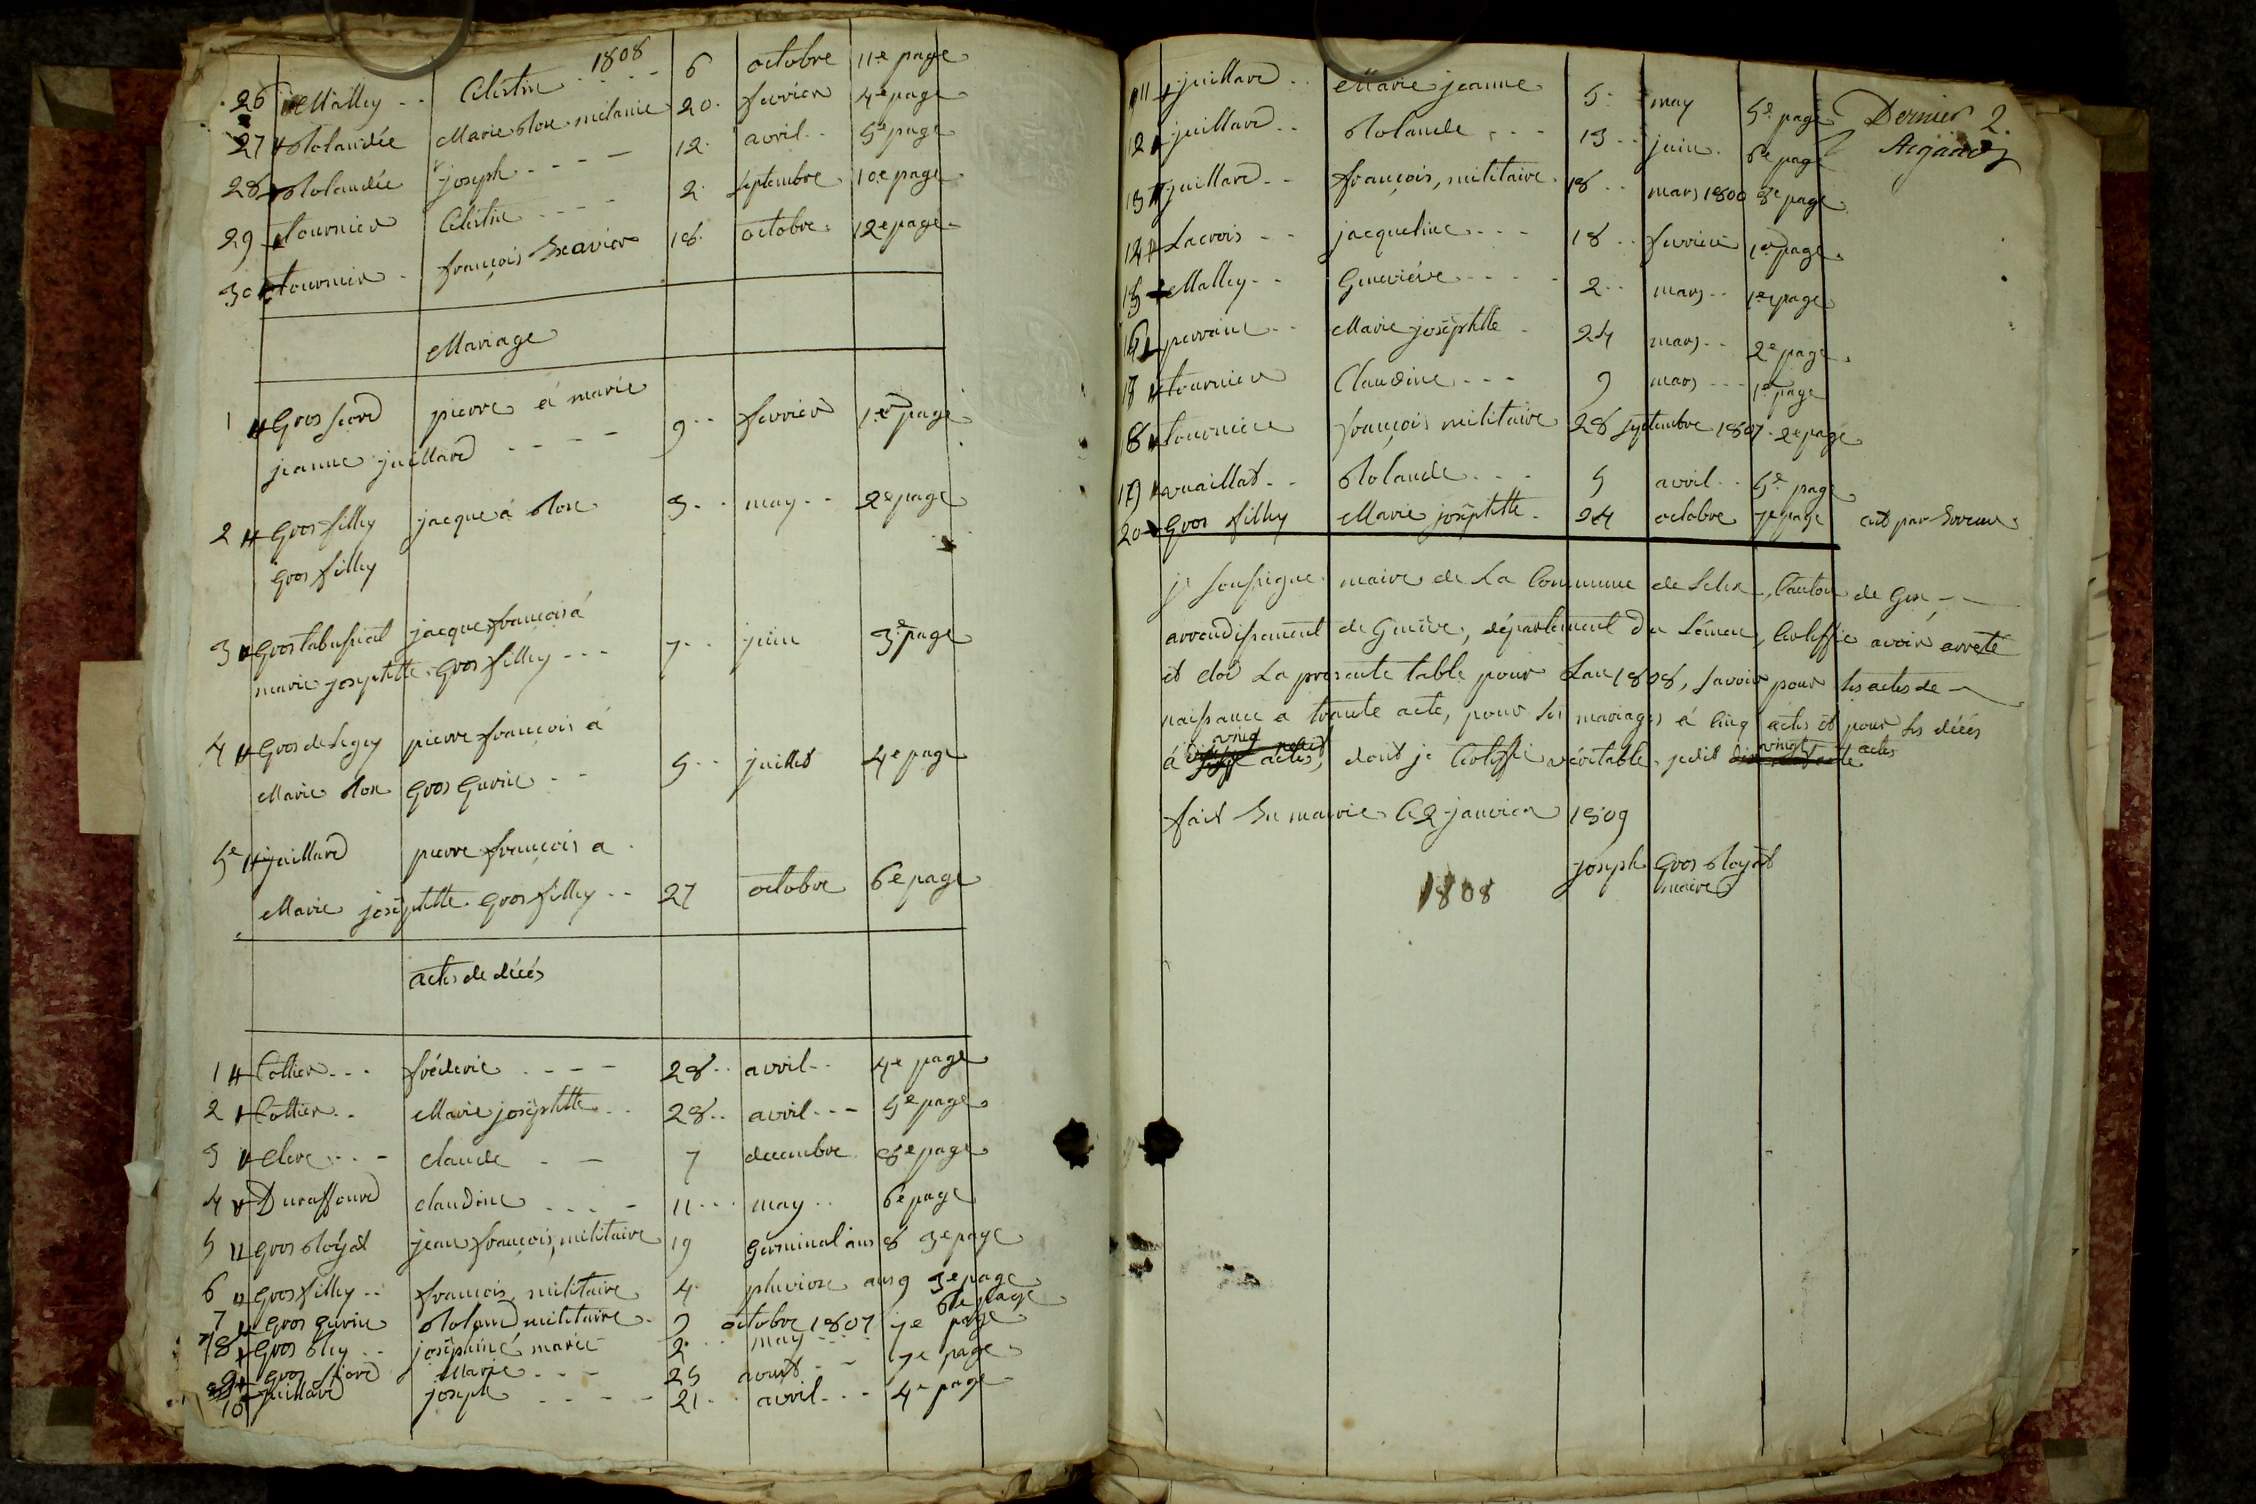 1808
26 Malley Celestin 6 octobre 11e page
27 Rolandée Marie Rose melanie 20 fevrier 4e page
28 Rolandée joseph 12 avril 5e page
29 tournier Celestin 2 septembre 10e page
30 tournier françois Xeavier 18 octobre 12e page
Mariage
1 Gros fiord pierre à marie
jeanne juillard 9 fevrier 1e page
2 Gros filley jacque à Rose 3 may 2e page
Gros filley
3 Gros tabussiat jacque françois à
marie josephtte Gros filley 7 juin 3e page
4 Gros de Segey pierre françois à
Marie Rose Gros Gurin 5 juillet 4e page
5e juillard pierre françois a
Marie josephtte Gros filley 27 octobre 6e page
actes de décés
1 Cottier fréderic 28 avril 4e page
2 Cottier Marie josephtte 28 avril 5e page
3 Clerc claude 7 decembre 8e page
4 Duraffourd claudine 11 may 6e page
5 gros Royat jean françois militaire 19 Germinal ans 8 3e page
6 gros filley françois militaire 4 pluviose ans 9 3e page
7 gros gurin Roland militaire 9 octobre 1807 7e page
8 gros Rey josephine marie 2 may 6e page
9 gros fiord Marie 25 aoust 7e page
10 juillard joseph 21 avril 4e page
11 juillard Marie jeanne 5 may 5e page
12 juillard Rolande 13 juin 6e page
13 juillard françois, militaire 18 mars 1800 8e page
14 Lacrois jacqueline 18 fevrier 1e page
15 Malley Geneviéve 2 mars 1e page
16 perrain Marie josephtte 24 mars 2e page
17 tournier Claudine 9 mars 1e page
18 tournier françois militaire 28 septembre 1807 2e page
19 vuaillat Rolande 5 avril 5e page
20 Gros filley Marie josephtte 24 octobre 7e page cit par Erreur
Dernier 2.
je soussigne maire de La Commune de Lelex, Canton de Gex
arrondissement de Genéve, département du Léman, Certiffie avoir arreté
et clos La presente table pour Lan 1808, savoir pour les actes de
naissance a trante acte, pour les mariages à cinq actes et pour les décés
à vingt actes, dont je Certiffie véritable, je dit vingt actes
fait En mairie le 2 janvier 1809
joseph Gros Royat
maire
1808